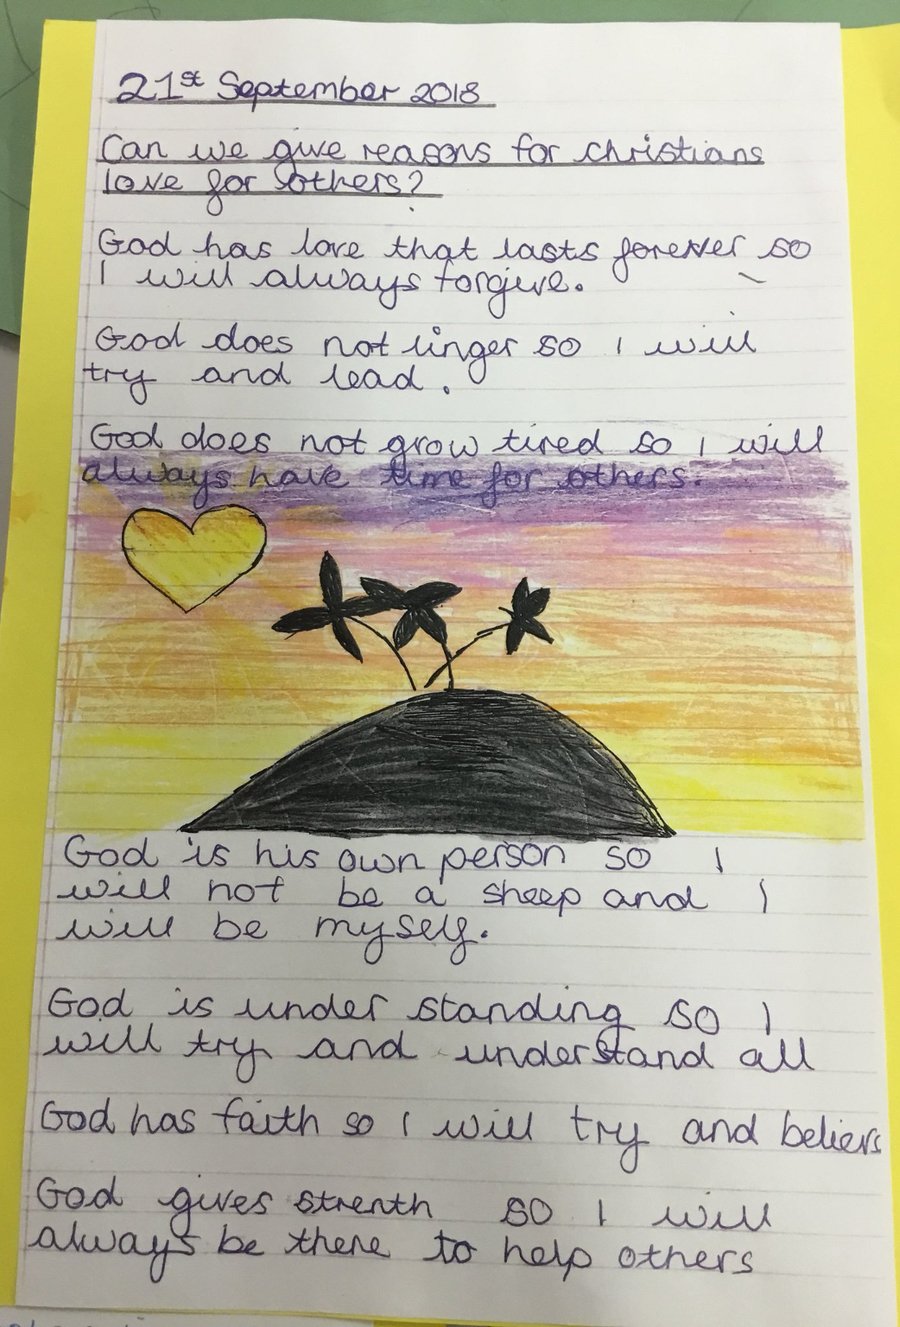 21st September 2018
Can we give reasons for christians
love for others?
God has love that lasts forever so
I will always forgive.
God does not linger so I will
try and lead.
God does not grow tired so I will
always have time for others.
God is his own person so I
will not be a sheep and I
will be myself.
God is under standing so I
will try and understand all
God has faith so I will try and
God gives strenth so I will
always be there to help others